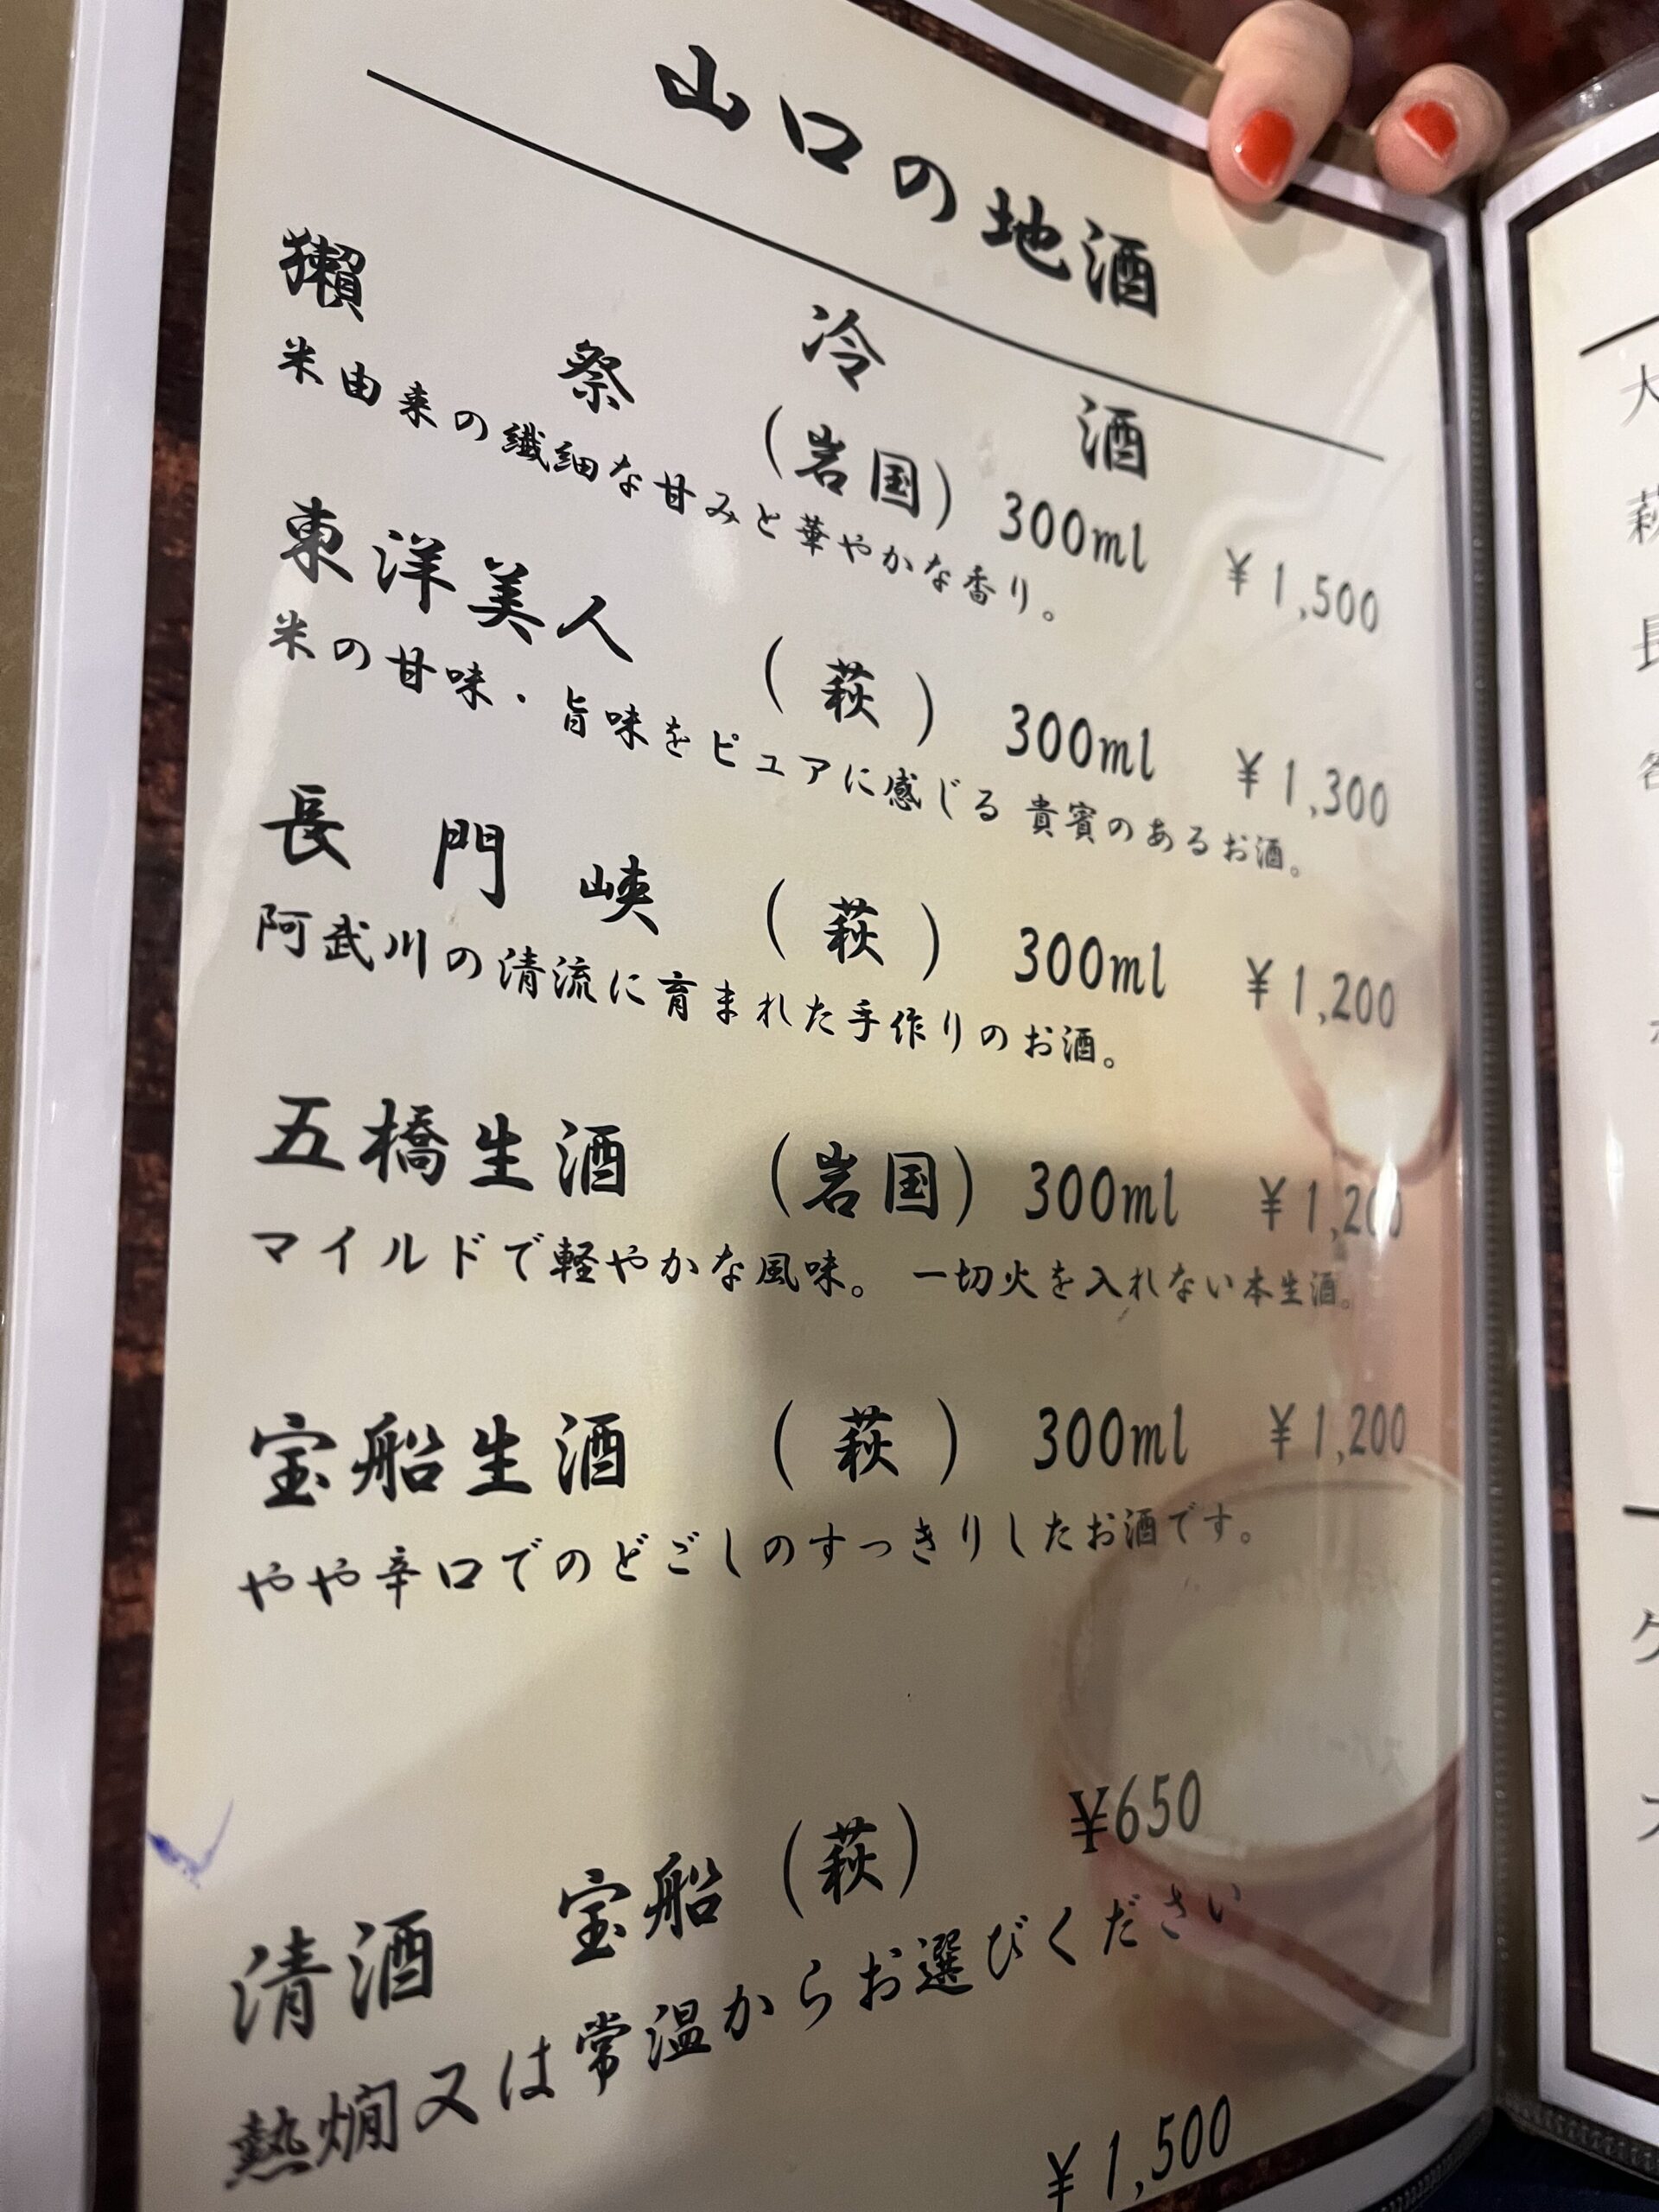 山口の地酒
冷酒
獺祭 (岩国) 300ml ¥1,500
米由来の繊細な甘みと華やかな香り。
東洋美人 (萩) 300ml ¥1,300
米の甘味・旨味をピュアに感じる 貴賓のあるお酒。
長門峡 (萩) 300ml ¥1,200
阿武川の清流に育まれた手作りのお酒。
五橋生酒 (岩国) 300ml ¥1,200
マイルドで軽やかな風味。 一切火を入れない本生酒。
宝船生酒 (萩) 300ml ¥1,200
やや辛口でのどごしのすっきりしたお酒です。
清酒 宝船 (萩) ¥650
熱燗又は常温からお選びください
¥1,500
大
萩
長